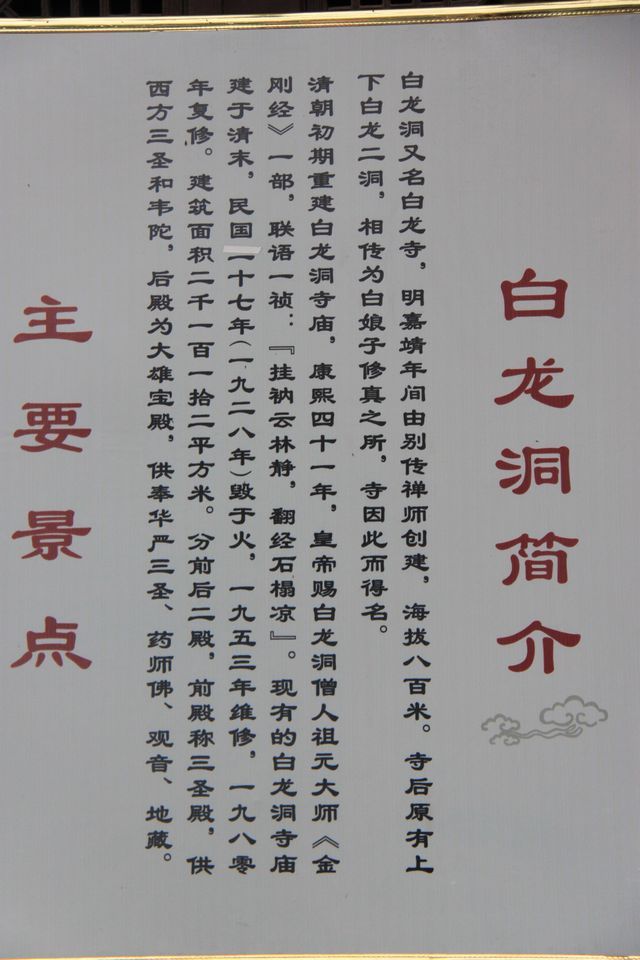 白龙洞简介
白龙洞又名白龙寺，明嘉靖年间由别传禅师创建，海拔八百米。寺后原有上
下白龙二洞，相传为白娘子修真之所，寺因此而得名。
清朝初期重建白龙洞寺庙，康熙四十一年，皇帝赐白龙洞僧人祖元大师《金
刚经》一部，联语一祯：『挂衲云林静，翻经石榻凉』。现有的白龙洞寺庙
建于清末，民国一十七年(一九二八年)毁于火，一九五三年维修，一九八零
年复修。建筑面积二千一百一拾二平方米。分前后二殿，前殿称三圣殿，供
西方三圣和韦陀，后殿为大雄宝殿，供奉华严三圣、药师佛、观音、地藏。
主要景点